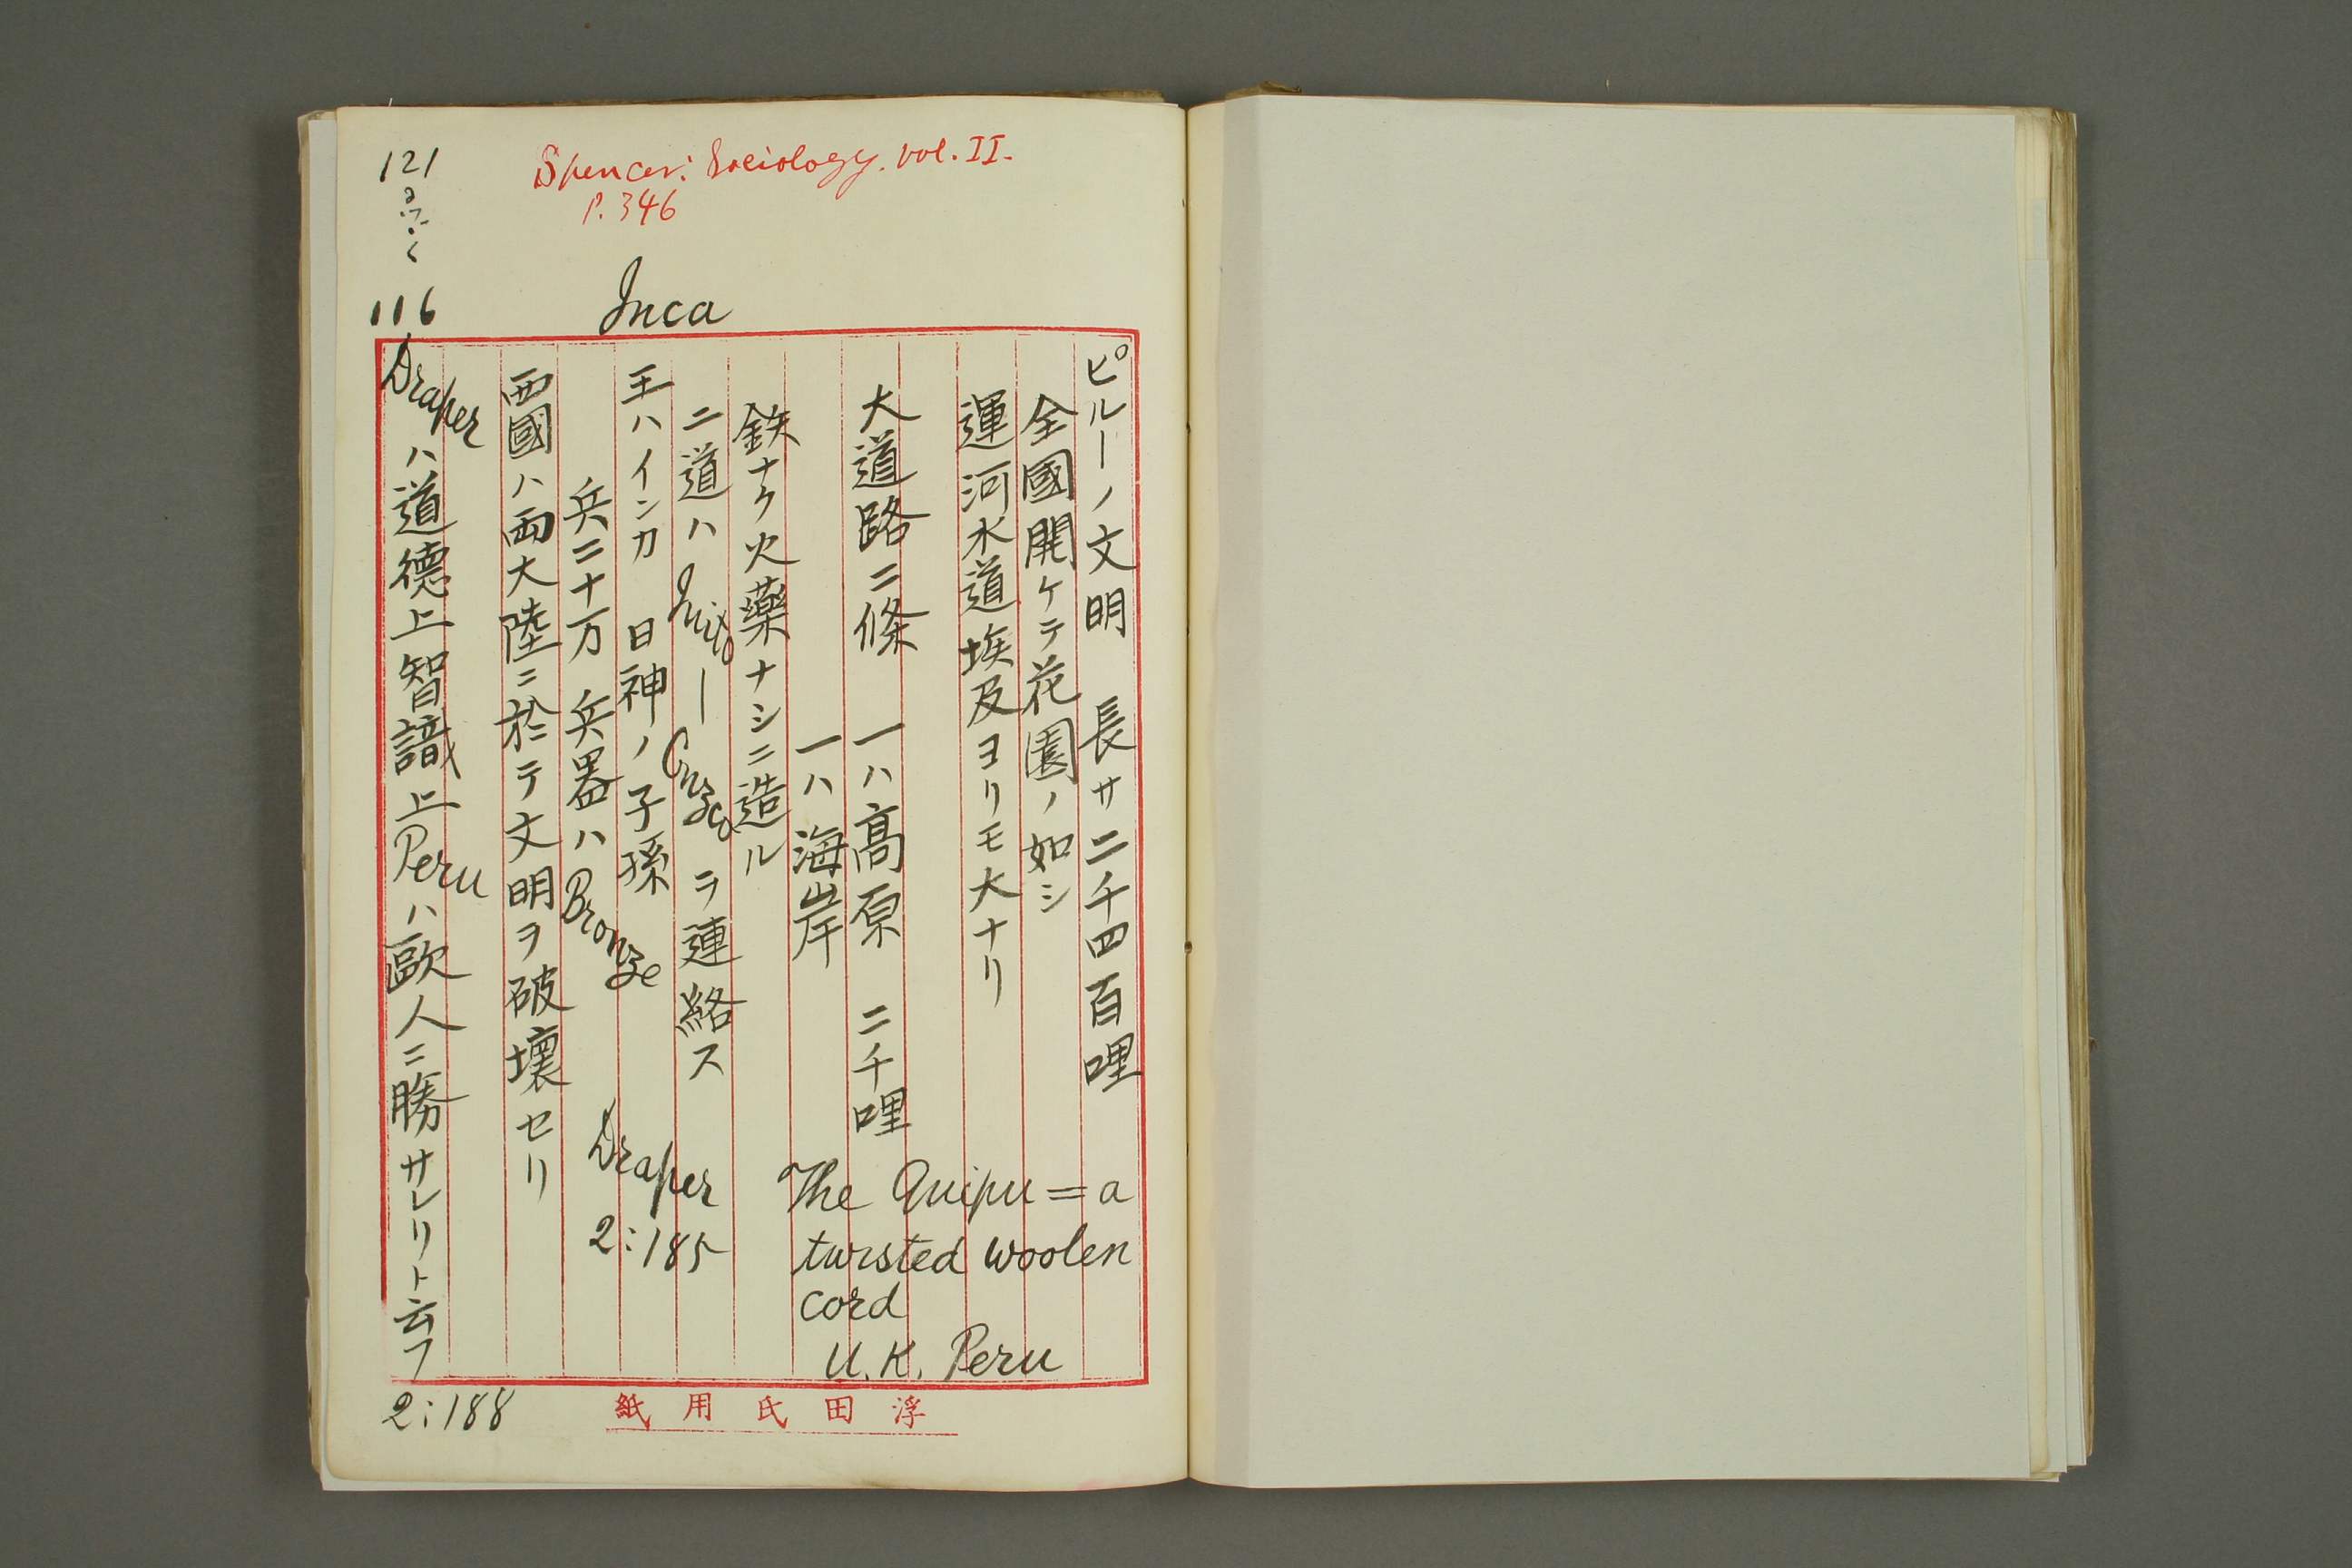 Spencer: Sociology. vol. II.
P. 346
121
116
Inca
ピルーノ文明 長サ二千四百哩
全國開ケテ花園ノ如シ
運河水道埃及ヨリモ大ナリ
大道路二條 一ハ高原 二千哩
一ハ海岸
鉄ナク火藥ナシニ造ル
二道ハ Quito — Cuzco ヲ連絡ス
王ハインカ 日神ノ子孫
兵二十万 兵器ハ Bronze
Draper
2:185
西國ハ両大陸ニ於テ文明ヲ破壞セリ
Draper ハ道德上智識上 Peru ハ歐人ニ勝サレリト云フ
2:188
The Quipu = a
twisted woolen
cord
U.K. Peru
浮田氏用紙